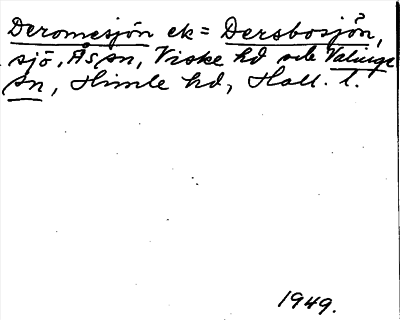 Deromesjön ek = Dersbosjön,
sjö, Ås sn, Viske hd och Valinge
sn, Himle hd, Hall. l.
1949.